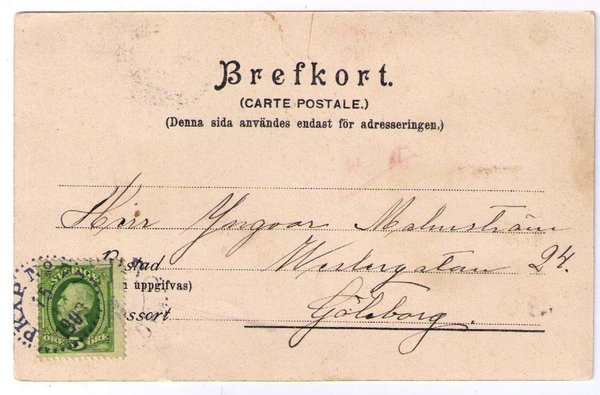 Brefkort.
(CARTE POSTALE.)
(Denna sida användes endast för adresseringen.)
Herr Yngvar Malmström
Bostad Westergatan 24.
uppgifvas)
Göteborg.
SVERIGE
5
ÖRE ÖRE
PKXP N